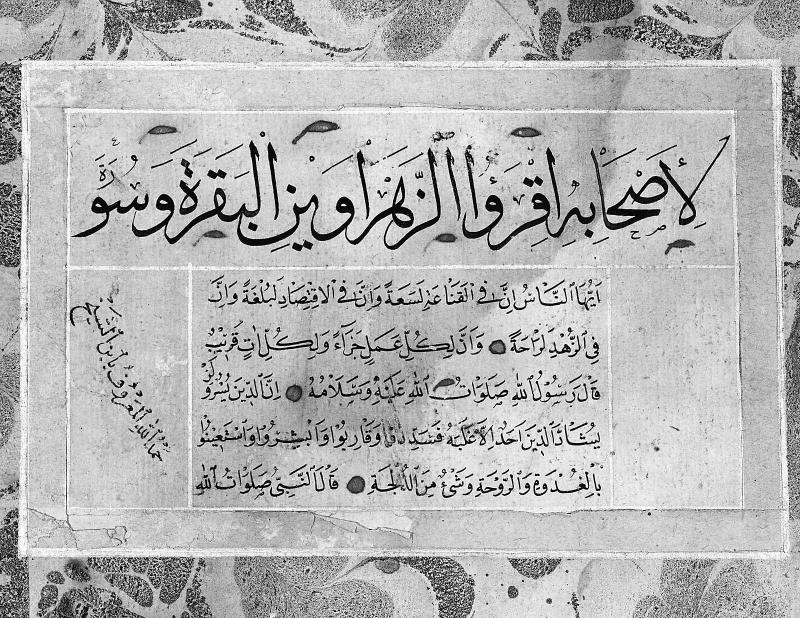 لِأَصْحَابِهِ اقْرَؤُا الزَّهْرَاوَيْنِ الْبَقَرَةَ وَسُورَةَ
اَيُّهَا النَّاسُ اِنَّ فِي الْقَنَاعَةِ لَسَعَةً وَاِنَّ فِي الْاِقْتِصَادِ لَبُلْغَةً وَاِنَّ
فِي الزُّهْدِ لَرَاحَةً وَاِنَّ لِكُلِّ عَمَلٍ جَزَاءً وَلِكُلِّ اٰتٍ قَرِيبٌ
قَالَ رَسُولُ اللّٰهِ صَلَوَاتُ اللّٰهِ عَلَيْهِ وَسَلَامُهُ اِنَّ الدِّينَ يُسْرٌ وَلَنْ
يُشَادَّ الدِّينَ اَحَدٌ اِلَّا غَلَبَهُ فَسَدِّدُوا وَقَارِبُوا وَاَبْشِرُوا وَاسْتَعِينُوا
بِالْغُدْوَةِ وَالرَّوْحَةِ وَشَيْءٍ مِنَ الدُّلْجَةِ قَالَ النَّبِيُّ صَلَوَاتُ اللّٰهِ
حمد الله المعروف بابن الشيخ